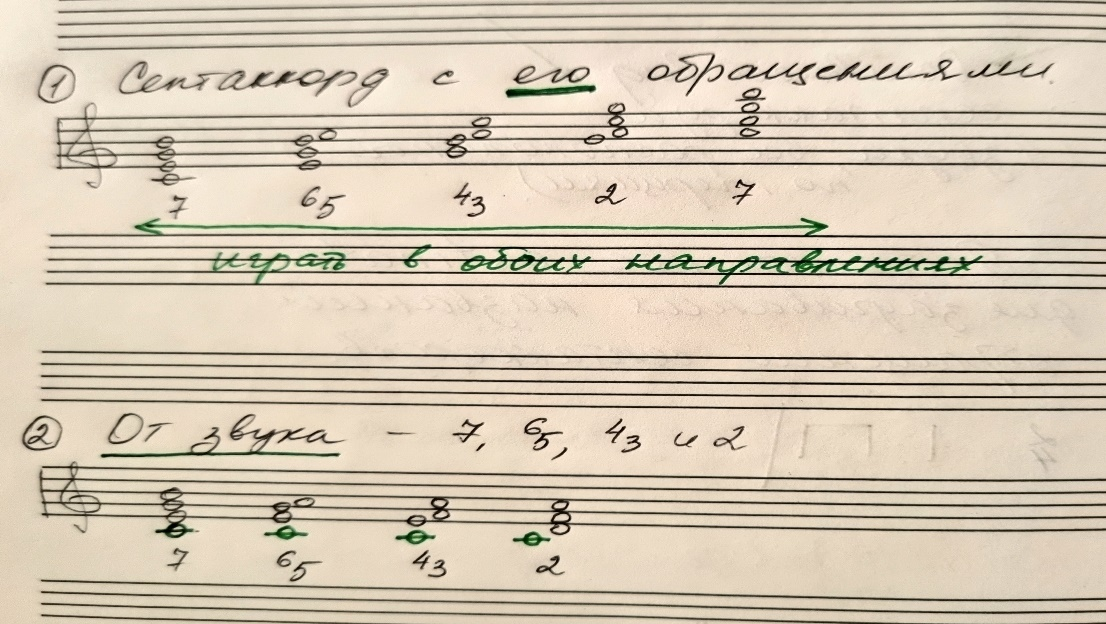 1 Септаккорд с его обращениями.
7 65 43 2 7
играть в обоих направлениях
2 От звука – 7, 65, 43 и 2
7 65 43 2